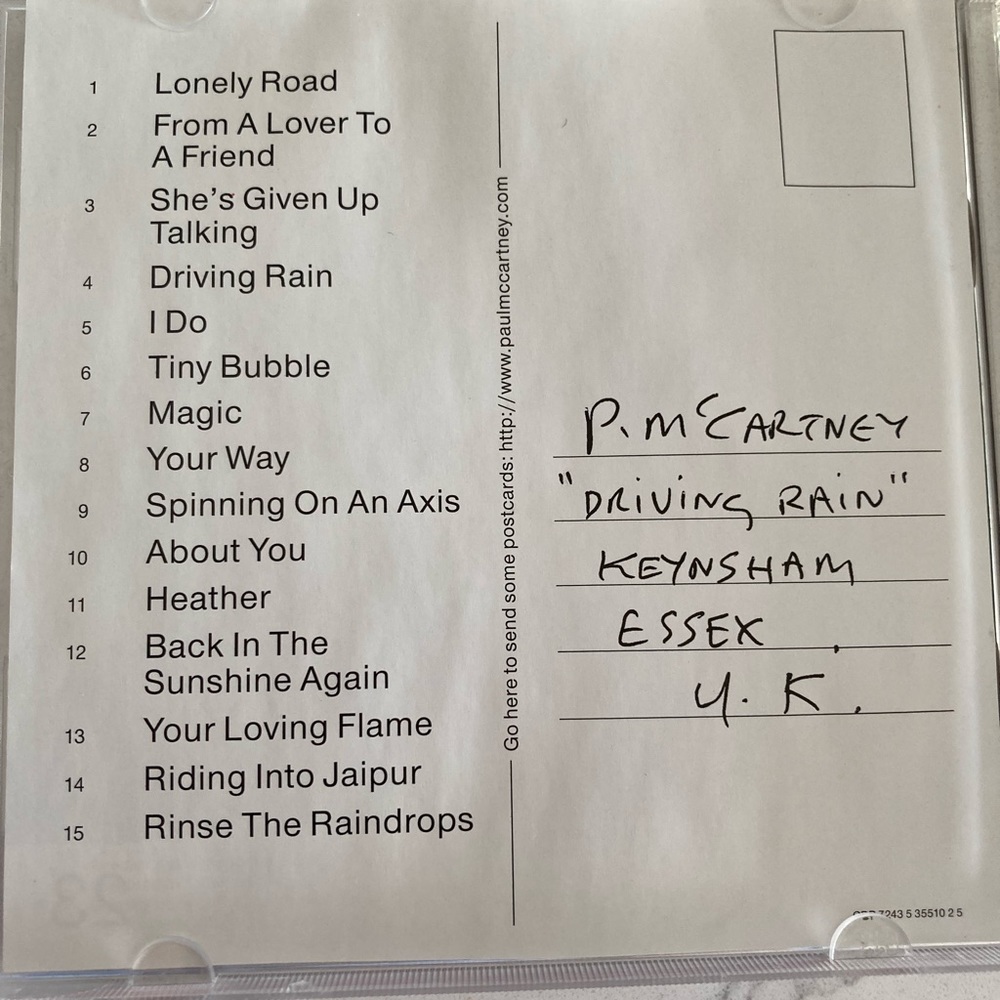 1 Lonely Road
2 From A Lover To
A Friend
3 She's Given Up
Talking
4 Driving Rain
5 I Do
6 Tiny Bubble
7 Magic
8 Your Way
9 Spinning On An Axis
10 About You
11 Heather
12 Back In The
Sunshine Again
13 Your Loving Flame
14 Riding Into Jaipur
15 Rinse The Raindrops
Go here to send some postcards: http://www.paulmccartney.com
P. McCARTNEY
"DRIVING RAIN"
KEYNSHAM
ESSEX .
U. K.
7243 5 35510 2 5